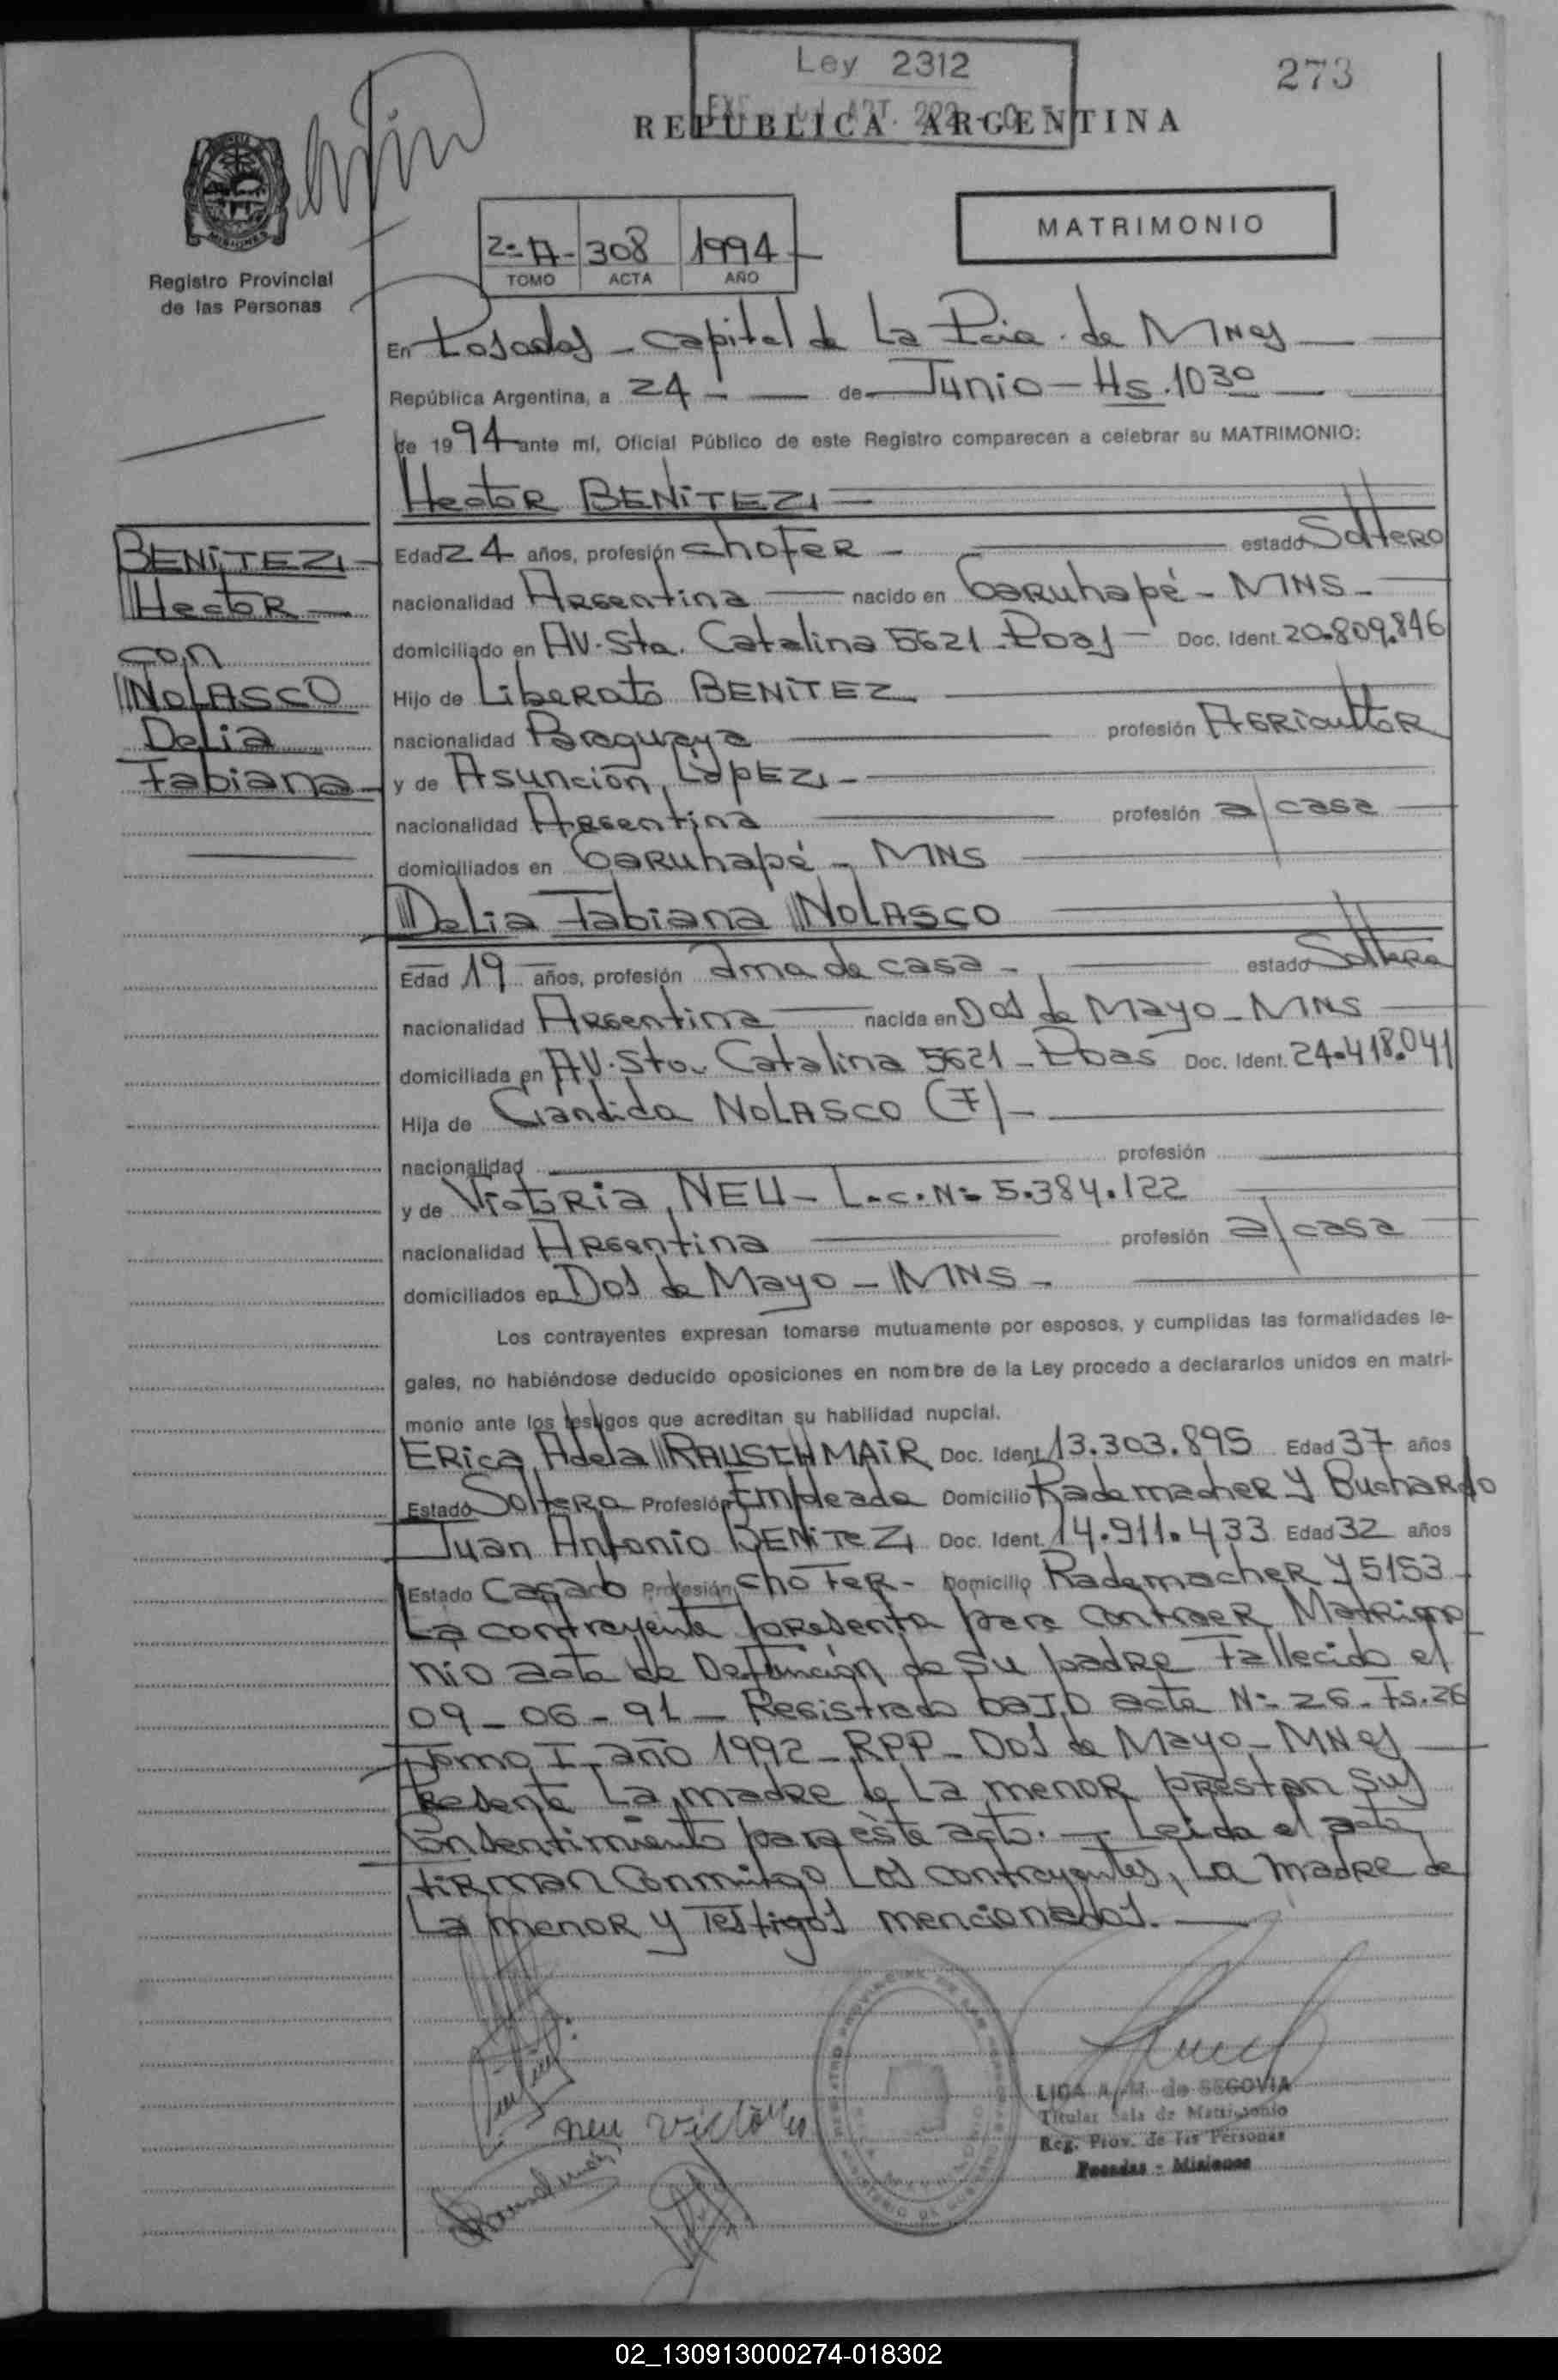 Ley 2312
273
REPUBLICA ARGENTINA
MATRIMONIO
2º A - 308 1994
TOMO ACTA AÑO
Registro Provincial
de las Personas
En Posadas - Capital de La Pcia. de Mnes
República Argentina, a 24 - de Junio - Hs. 10 30
de 1994 ante mí, Oficial Público de este Registro comparecen a celebrar su MATRIMONIO:
Hector BENITEZ
BENITEZ
Hector
con
NOLASCO
Delia
Fabiana
Edad 24 años, profesión chofer - estado Soltero
nacionalidad Argentina nacido en Garuhapé - MNS -
domiciliado en AV. Sta. Catalina 5621 - Pdas - Doc. Ident. 20.809.846
Hijo de Liberato BENITEZ
nacionalidad Paraguaya profesión Agricultor
y de Asunción LópEZ -
nacionalidad Argentina profesión a/casa
domiciliados en Garuhapé - MNS
Delia Fabiana NOLASCO
Edad 19 años, profesión Ama de casa - estado Soltera
nacionalidad Argentina nacida en Dos de Mayo - MNS
domiciliada en AV. Sta. Catalina 5621 - Pdas Doc. Ident. 24.418.041
Hija de Candida NOLASCO (F) -
nacionalidad profesión
y de Victoria NEU - L.C. Nº 5.384.122
nacionalidad Argentina profesión a/casa
domiciliados en Dos de Mayo - MNS -
Los contrayentes expresan tomarse mutuamente por esposos, y cumplidas las formalidades le-
gales, no habiéndose deducido oposiciones en nombre de la Ley procedo a declararlos unidos en matri-
monio ante los testigos que acreditan su habilidad nupcial.
Erica Adela RAUSCHMAIR Doc. Ident. 13.303.895 Edad 37 años
Estado Soltera Profesión Empleada Domicilio Rademacher y Buchardo
Juan Antonio BENITEZ Doc. Ident. 14.911.433 Edad 32 años
Estado Casado Profesión Chofer - Domicilio Rademacher y 5153
La contrayente presenta para contraer Matrimo
nio acta de Defunción de su padre Fallecido el
09-06-91 - Registrado bajo acta Nº 26 - Fs. 26
Tomo I - año 1992 - RPP - Dos de Mayo - Mnes
Presente La madre de La menor prestan sus
consentimiento para este acto. - Leida el acta
firman conmigo Los contrayentes, La madre de
La menor y Testigos mencionados.
neu victoria
LIDA A. M. de SEGOVIA
Titular Sala de Matrimonio
Reg. Prov. de las Personas
Posadas - Misiones
02_130913000274-018302